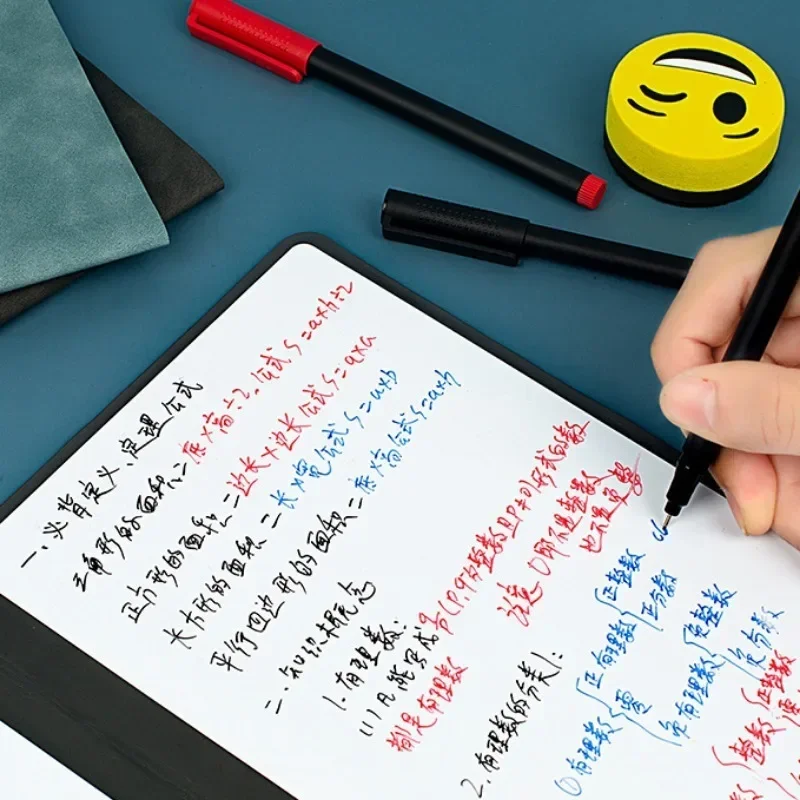 一、必背定义、定理公式
三角形的面积=底×高÷2。公式 S=a×h÷2
正方形的面积=边长×边长 公式 S=a×a
长方形的面积=长×宽 公式 S=a×b
平行四边形的面积=底×高 公式 S=a×h
二、知识概念
1.有理数:
(1)凡能写成 (p,q为整数且p≠0)形式的数
都是有理数
注意 0即不是整数
也不是负数
2.有理数的分类1:
①有理数
正有理数
正整数
正分数
零
负有理数
负整数
负分数
整数
正整数
零